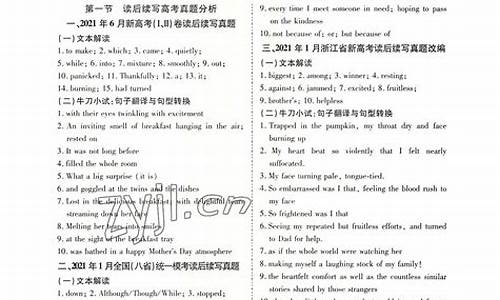 第一节 读后续写高考真题分析
一、2021 年 6 月新高考(Ⅰ、Ⅱ)卷读后续写真题
(一)文本解读
1. to make; 2. which; 3. came; 4. quietly;
5. while; 6. into; 7. mixture; 8. smoothly; 9. out;
10. panicked; 11. Thankfully; 12. a; 13. it;
14. burning; 15. had turned
(二)牛刀小试:句子翻译与句型转换
1. with their eyes twinkling with excitement
2. An inviting smell of breakfast hanging in the air;
rested on
3. It was not long before
4. filled the whole room
5. What a big surprise (it is)
6. and goggled at the twins and the dishes
7. Lost in the delicious breakfast, with delightful tears
streaming down her face
8. Melting her tears into smiles
9. at the sight of the breakfast tray
10. was bathed in a happy Mother's Day atmosphere
二、2021 年 1 月全国(八省)统一模考读后续写真题
(一)文本解读
1. down; 2. Although/Though/While; 3. stopped;
9. every time I meet someone in need; hoping to pass
on the kindness
10. not because of; or; but because of
三、2021 年 1 月浙江省新高考读后续写真题改编
(一)文本解读
1. biggest; 2. among; 3. winner; 4. resting;
5. against; 6. jammed; 7. excited; 8. fruitless;
9. brother's; 10. helpless
(二)牛刀小试:句子翻译与句型转换
1. Trapped in the pumpkin, my throat dry and face
burning up
2. My heart beat so violently that I felt nearly
suffocated.
3. My face turning pale, tongue-tied.
4. So embarrassed was I that, feeling the blood rush to
my face
5. So frightened was I that
6. Seeing my repeated but fruitless efforts, and turned
to Dad for help.
7. as if the whole world were watching her
8. making myself a laughing stock of my family!
9. the heartfelt comfort as well as the countless similar
stories shared by those strangers
zyjl.cn